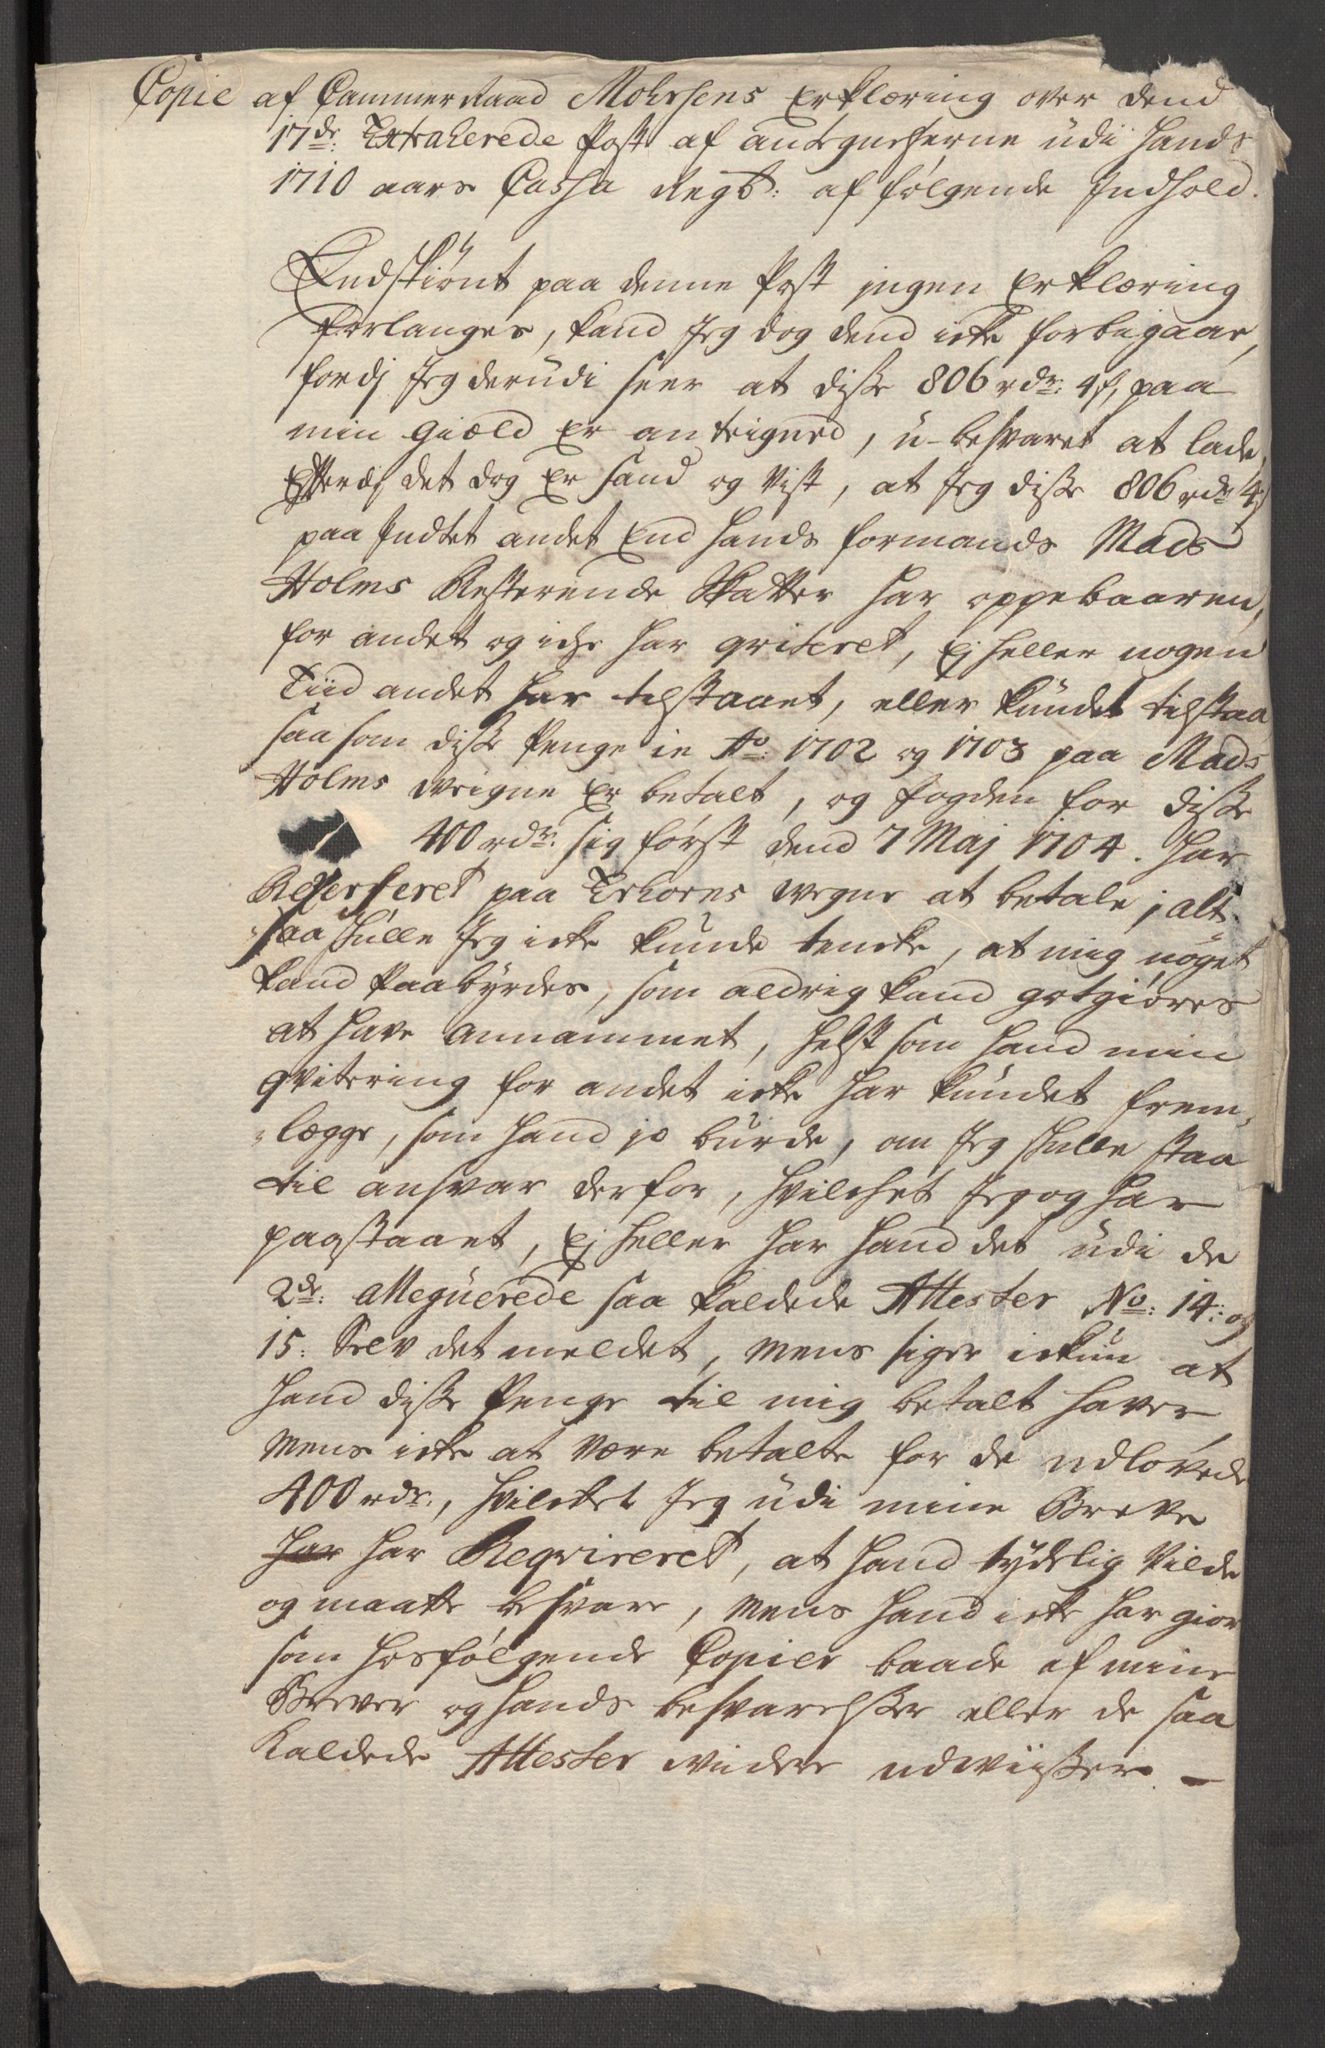 Copie af Cammer Raad Mohrsens Erklæring over dend
17de: Extraherede Post af antegnelserne udi hands
1710 aars Cassa Regsb: af følgende Indhold.
Endskiønt paa denne Post ingen Erklæring
forlanges, kand Jeg dog dend icke forbigaae,
fordj Jeg derudi seer at disse 806 rdr: 4 s, paa
min Giæld er anteigned, u-besvaret at lade,
Efterdj det dog er sand og vist, at Jeg disse 806 rdr 4 s
paa Indtet andet End hands formands Mads
Holms Resterende Skatter har oppebaaren,
for andet og icke har qviteret, Ej heller nogen
Tiid andet har tilstaaet, eller kundet tilstaa
saasom disse Penge ie Ao: 1702 og 1703 paa Mads
Holms weigne er betalt, og fogden for disse
400 rdr: sig først dend 7 Maj 1704. har
Reverseret paa vegne at betale, alt
saa skulle Jeg icke kunde tencke, at mig noget
kand Paabyrdes, som aldrig kand gotgiøres
at have annammet, helst som hand min
qvitering for andet icke har kundet frem-
lægge, som hand jo burde, om Jeg skulle staa
til ansvar derfor, hvilchet Jeg og har
paastaaet, Ej heller har hand det udi de
2de: alleguerede saa kaldede Attester No: 14: og
15: Selv det meldet, mens siger ickun at
hand disse Penge til mig betalt haver
mens icke at være betalte for de udlovede
400 rdr:, hvilchet Jeg udi mine Breve
har har Reqvireret, at hand tydelig vilde
og maatte besvare, mens hand icke har giort
som hosfølgende Copier baade af mine
Brever og hands besvarelsser eller de saa
kaldede Attester widere udwiisser. —